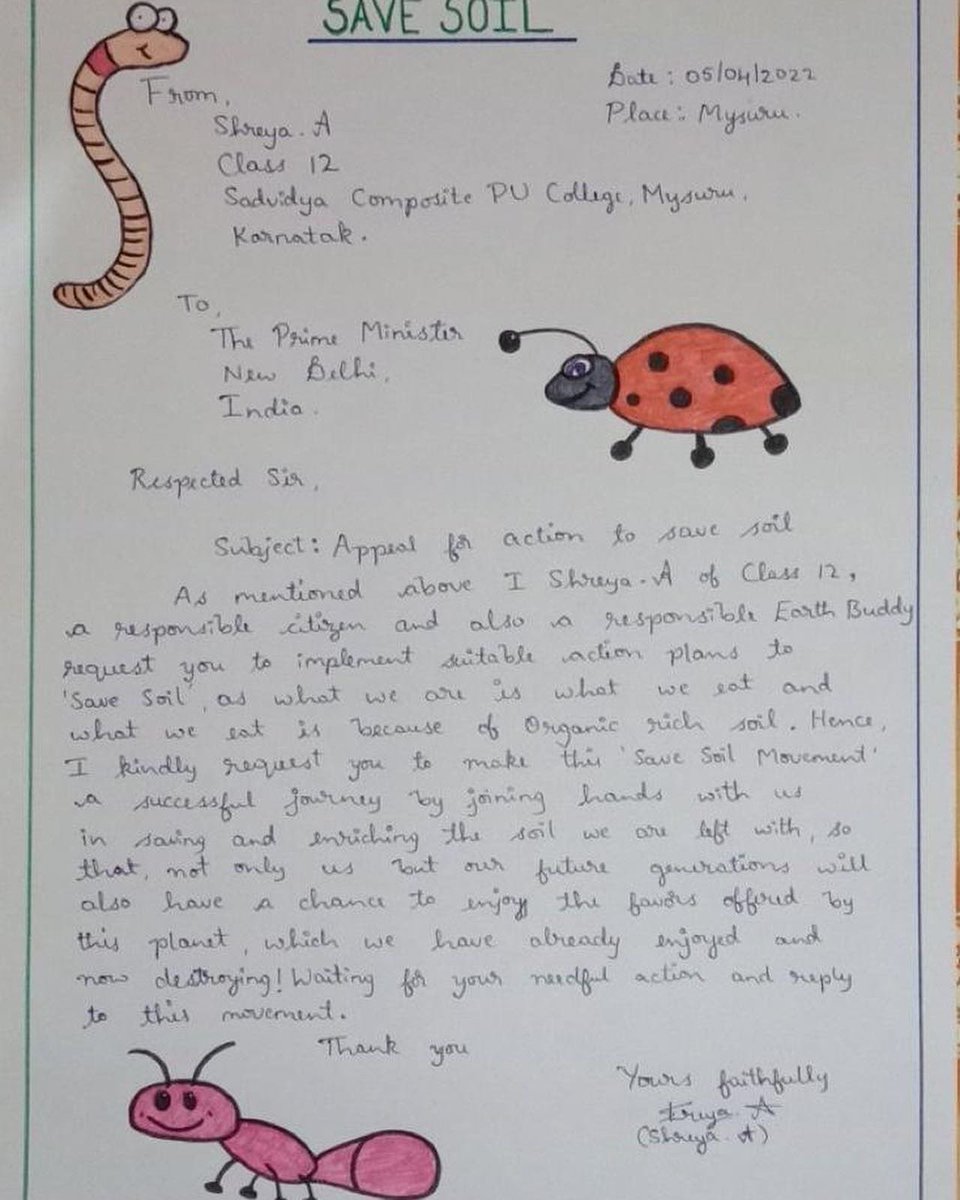 SAVE SOIL
Date : 05/04/2022
Place : Mysuru.
From,
Shreya. A
Class 12
Sadvidya Composite PU College, Mysuru,
Karnatak.
To,
The Prime Minister
New Delhi,
India.
Respected Sir,
Subject: Appeal for action to save soil
As mentioned above I Shreya. A of Class 12,
a responsible citizen and also a responsible Earth Buddy
request you to implement suitable action plans to
'Save Soil', as what we are is what we eat and
what we eat is because of Organic rich soil. Hence,
I kindly request you to make this 'Save Soil Movement'
a successful journey by joining hands with us
in saving and enriching the soil we are left with, so
that, not only us but our future generations will
also have a chance to enjoy the favors offered by
this planet, which we have already enjoyed and
now destroying! Waiting for your needful action and reply
to this movement.
Thank you
Yours faithfully
(Shreya. A)